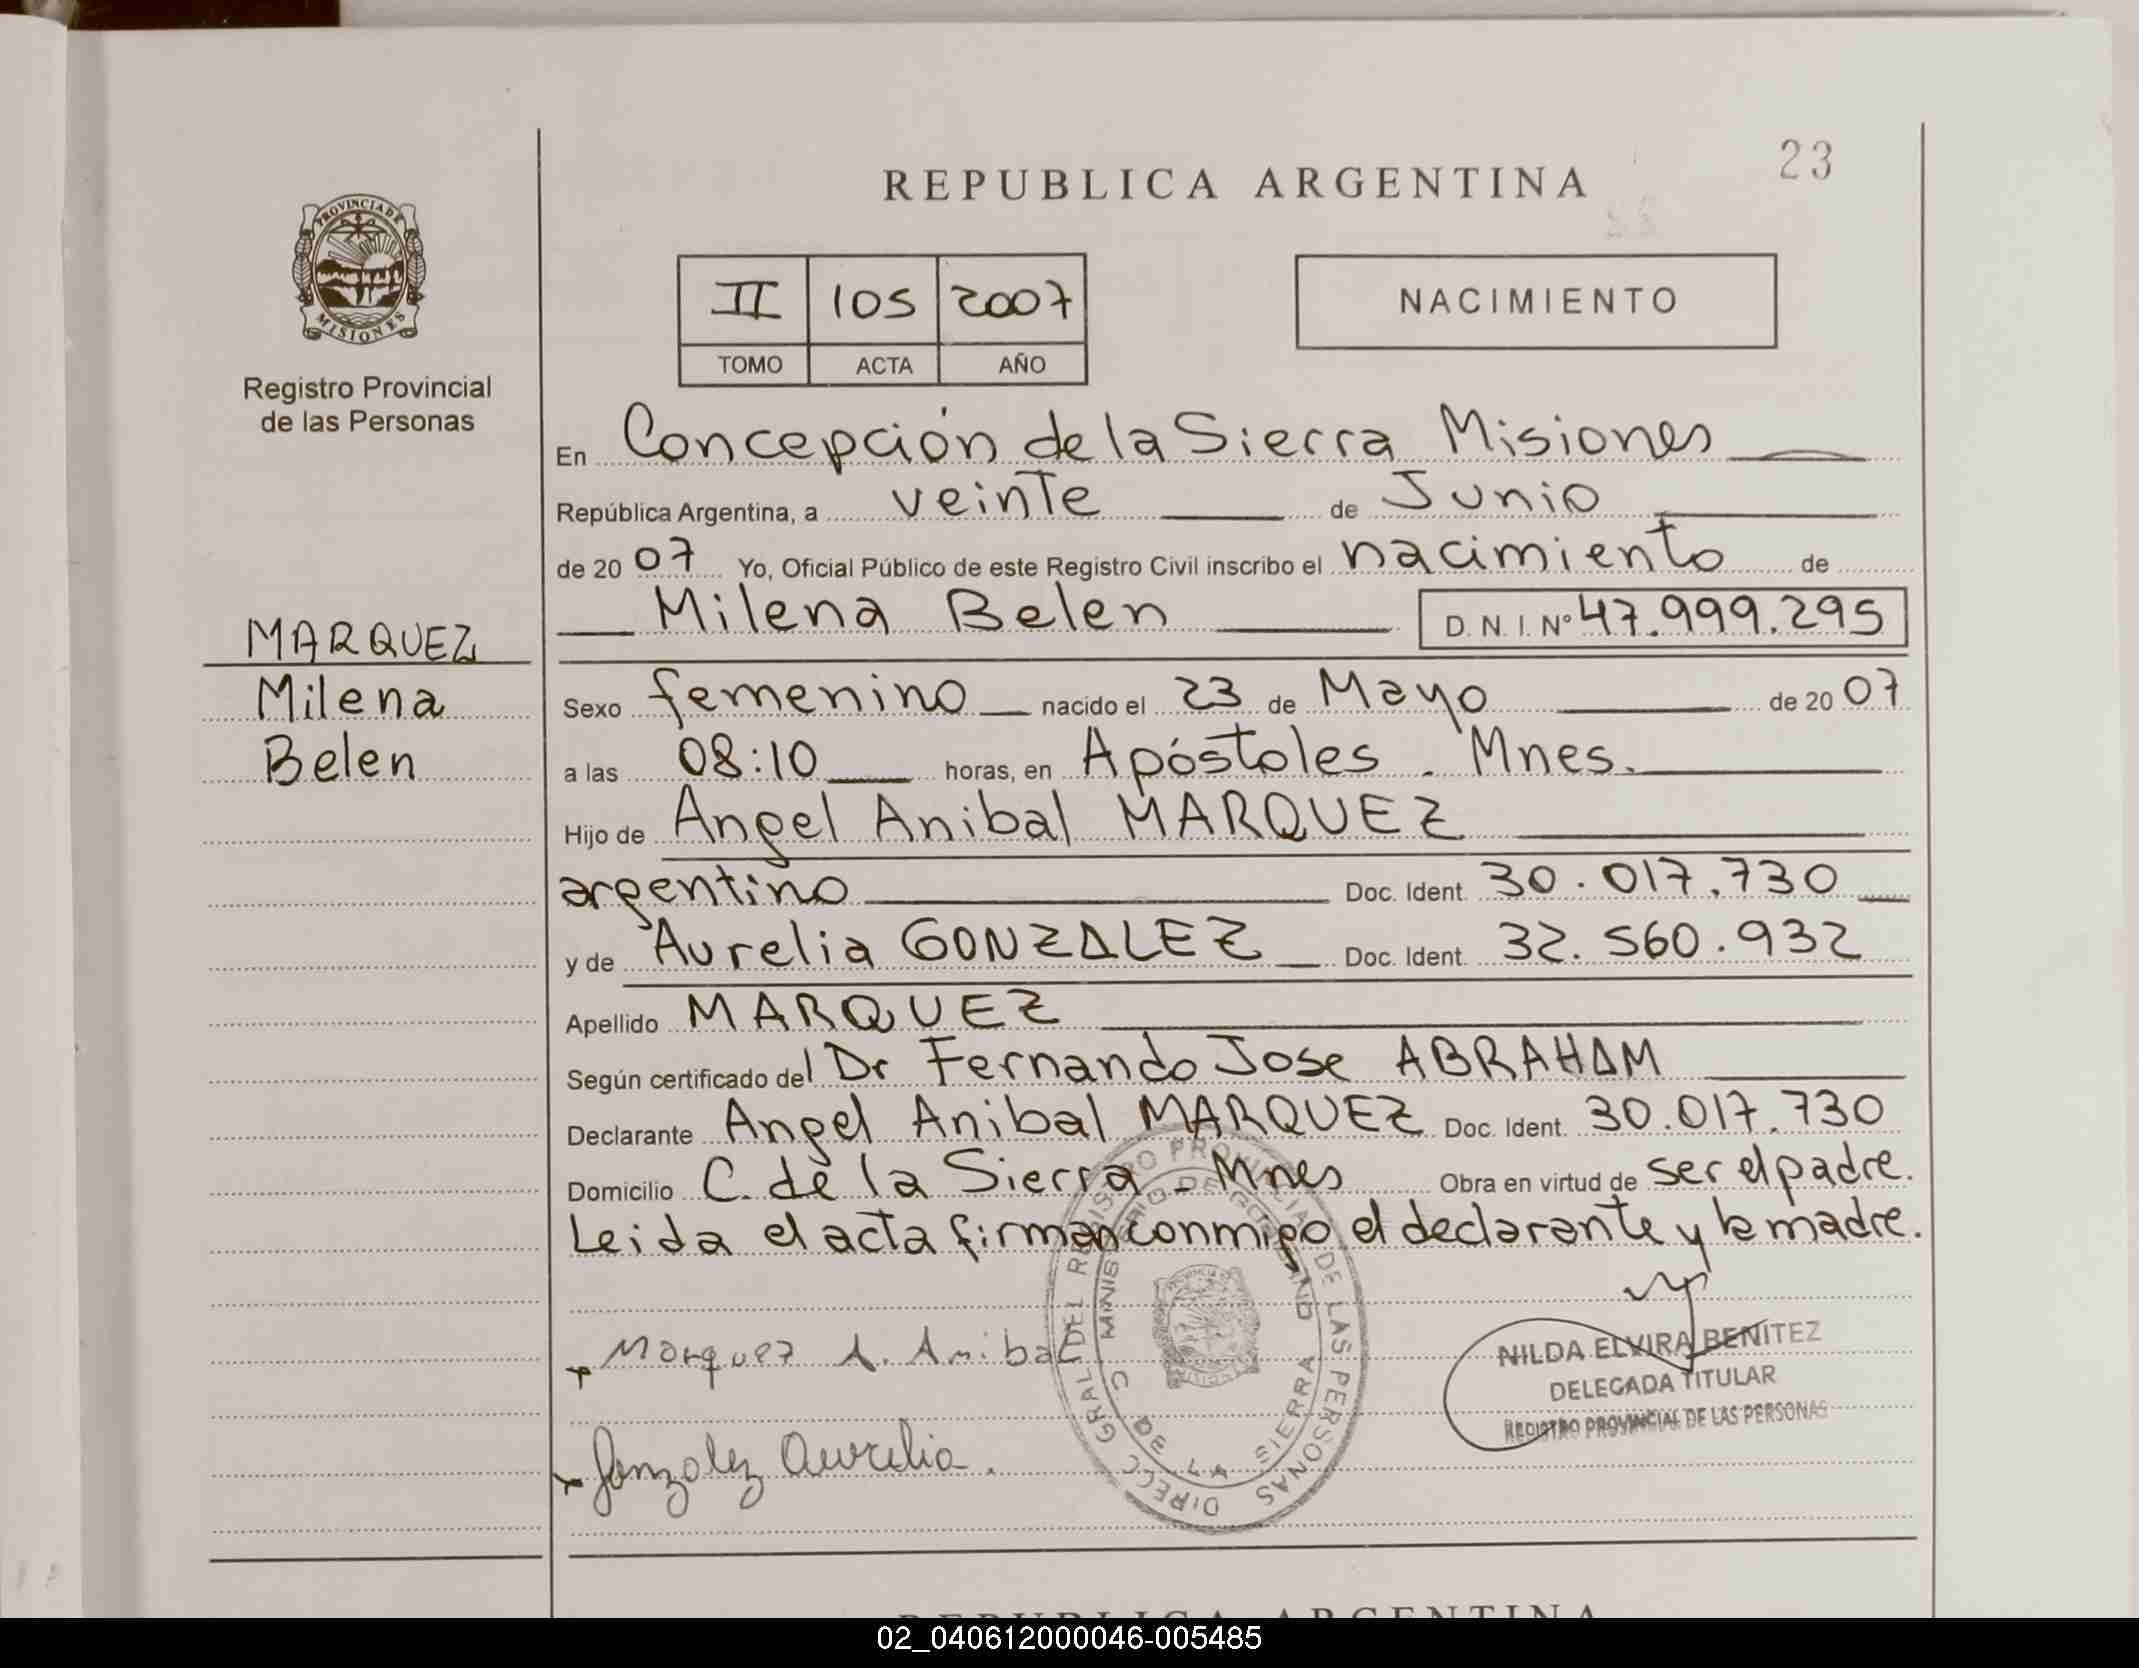 23
REPUBLICA ARGENTINA
PROVINCIA DE
MISIONES
Registro Provincial
de las Personas
II 105 2007
TOMO ACTA AÑO
NACIMIENTO
En Concepción de la Sierra Misiones
República Argentina, a veinte de Junio
de 2007 Yo, Oficial Público de este Registro Civil inscribo el nacimiento de
Milena Belen D. N. I. Nº 47.999.295
MARQUEZ
Milena
Belen
Sexo femenino nacido el 23 de Mayo de 2007
a las 08:10 horas, en Apóstoles. Mnes.
Hijo de Angel Anibal MARQUEZ
argentino Doc. Ident. 30.017.730
y de Aurelia GONZALEZ Doc. Ident. 32.560.932
Apellido MARQUEZ
Según certificado del Dr Fernando Jose ABRAHAM
Declarante Angel Anibal MARQUEZ Doc. Ident. 30.017.730
Domicilio C. de la Sierra - Mnes Obra en virtud de ser el padre.
Leida el acta firman conmigo el declarante y la madre.
Marquez A. Anibal
Gonzalez Aurelia.
DIRECC GRAL DEL REGISTRO PROVINCIAL DE LAS PERSONAS
C. DE LA SIERRA
NILDA ELVIRA BENITEZ
DELEGADA TITULAR
REGISTRO PROVINCIAL DE LAS PERSONAS
REPUBLICA ARGENTINA
02_040612000046-005485